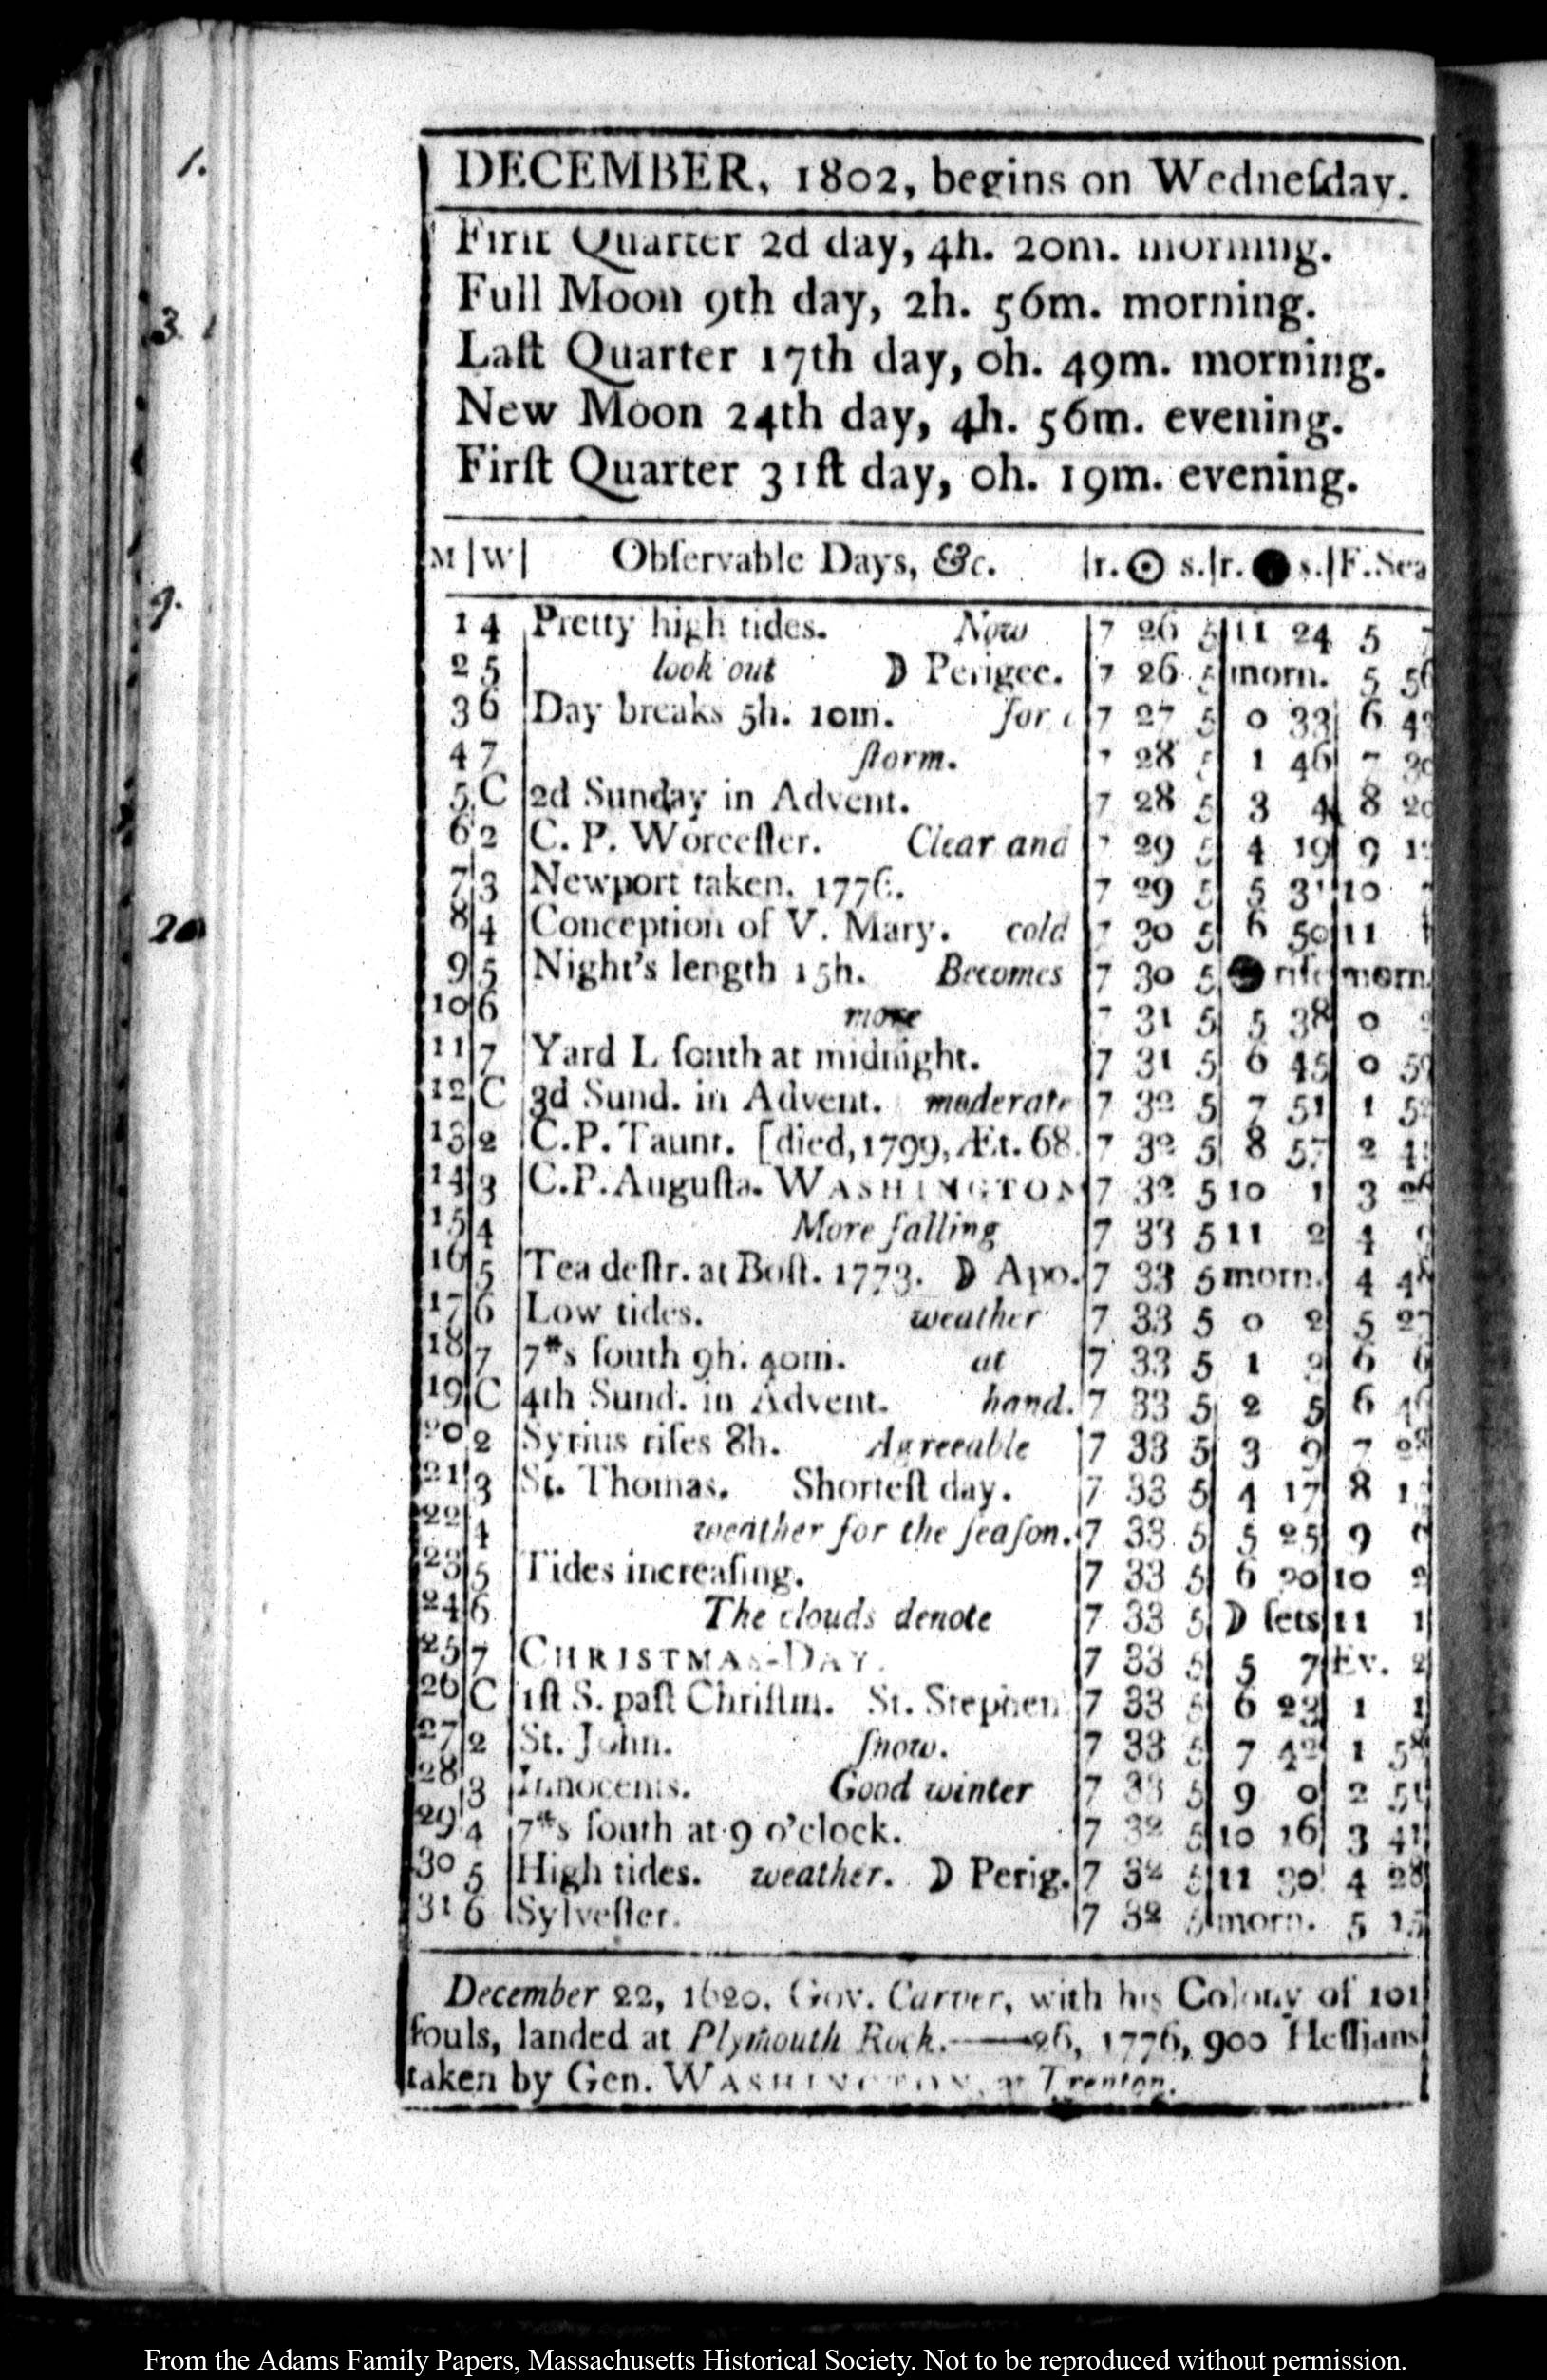 1.
3
9.
20
DECEMBER, 1802, begins on Wedneſday.
Firſt Quarter 2d day, 4h. 20m. morning.
Full Moon 9th day, 2h. 56m. morning.
Laſt Quarter 17th day, 0h. 49m. morning.
New Moon 24th day, 4h. 56m. evening.
Firſt Quarter 31ſt day, 0h. 19m. evening.
M|W| Obſervable Days, &c. |r. ☉ s.|r. ● s.|F.Sea
1 4 Pretty high tides. Now 7 26 5 11 24 5
2 5 look out D Perigee. 7 26 5 morn. 5 56
3 6 Day breaks 5h. 10m. for 7 27 5 0 33 6
4 7 ſtorm. 7 28 5 1 46 7
5 C 2d Sunday in Advent. 7 28 5 3 4 8
6 2 C. P. Worceſter. Clear and 7 29 5 4 19 9
7 3 Newport taken. 1776. 7 29 5 5 10
8 4 Conception of V. Mary. cold 7 30 5 6 50 11
9 5 Night's length 15h. Becomes 7 30 5 ● riſe morn.
10 6 more 7 31 5 5 38 0
11 7 Yard L ſouth at midnight. 7 31 5 6 45 0
12 C 3d Sund. in Advent. moderate 7 32 5 7 51 1
13 2 C.P. Taunt. [died, 1799, Æt. 68. 7 32 5 8 57 2
14 3 C.P. Auguſta. WASHINGTON 7 32 5 10 1 3
15 4 More falling 7 33 5 11 2 4
16 5 Tea deſtr. at Boſt. 1773. D Apo. 7 33 5 morn. 4
17 6 Low tides. weather 7 33 5 0 2 5 27
18 7 7*s ſouth 9h. 40m. at 7 33 5 1 6
19 C 4th Sund. in Advent. hand. 7 33 5 2 5 6
20 2 Syrius riſes 8h. Agreeable 7 33 5 3 9 7
21 3 St. Thomas. Shorteſt day. 7 33 5 4 17 8
22 4 weather for the ſeaſon. 7 33 5 5 25 9
23 5 Tides increaſing. 7 33 5 6 10
24 6 The clouds denote 7 33 5 D ſets 11
25 7 CHRISTMAS-DAY. 7 33 5 5 7 Ev.
26 C 1ſt S. paſt Chriſtm. St. Stephen 7 33 5 6 23 1
27 2 St. John. ſnow. 7 33 5 7 42 1
28 3 Innocents. Good winter 7 33 5 9 0 2
29 4 7*s ſouth at 9 o'clock. 7 32 5 10 16 3 41
30 5 High tides. weather. D Perig. 7 32 5 11 30 4 28
31 6 Sylveſter. 7 32 5 morn. 5 15
December 22, 1620, Gov. Carver, with his Colony of 101
ſouls, landed at Plymouth Rock.——26, 1776, 900 Heſſians
taken by Gen. WASHINGTON, at Trenton.
From the Adams Family Papers, Massachusetts Historical Society. Not to be reproduced without permission.